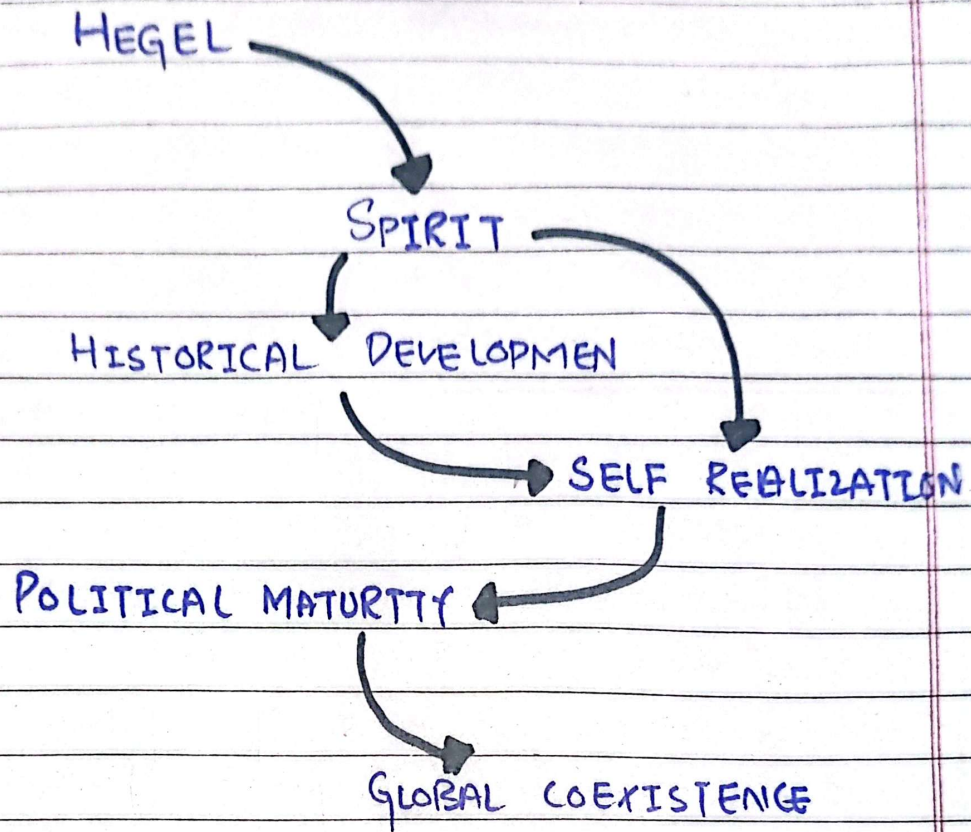 HEGEL
SPIRIT
HISTORICAL DEVELOPMEN
SELF REALIZATION
POLITICAL MATURTTY
GLOBAL COEXISTENCE